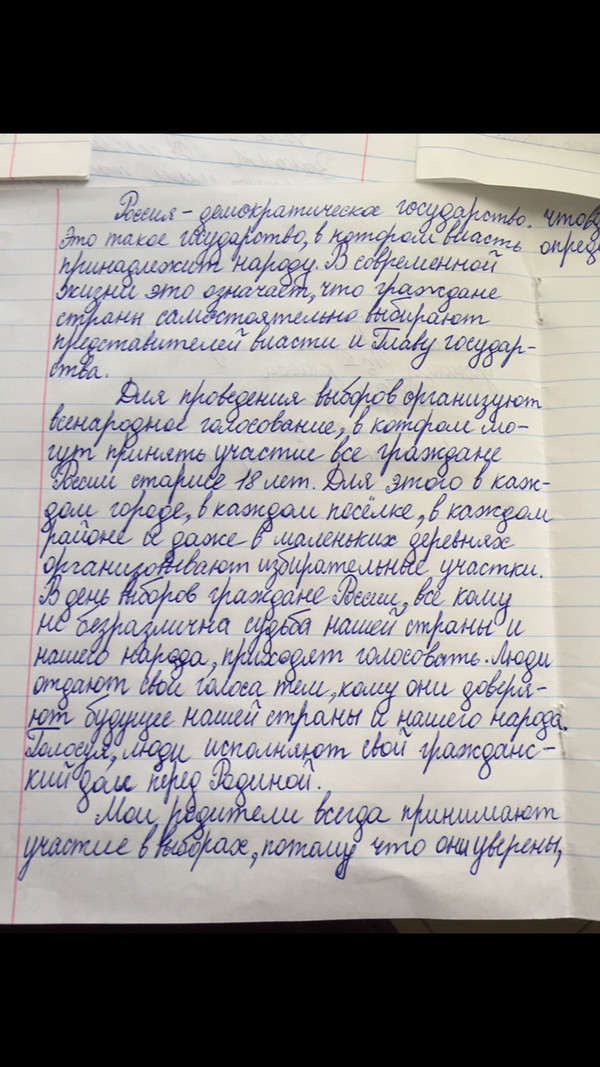 Россия - демократическое государство. чтобы
Это такое государство, в котором власть опред
принадлежит народу. В современной
жизни это означает, что граждане
страны самостоятельно выбирают
представителей власти и Главу государ-
ства.
Для проведения выборов организуют
всенародное голосование, в котором мо-
гут принять участие все граждане
России старше 18 лет. Для этого в каж-
дом городе, в каждом посёлке, в каждом
районе и даже в маленьких деревнях
организовывают избирательные участки.
В день выборов граждане России, все кому
не безразлична судьба нашей страны и
нашего народа, приходят голосовать. Люди
отдают свои голоса тем, кому они доверя-
ют будущее нашей страны и нашего народа.
Голосуя, люди исполняют свой гражданс-
кий долг перед Родиной.
Мои родители всегда принимают
участие в выборах, потому что они уверены,